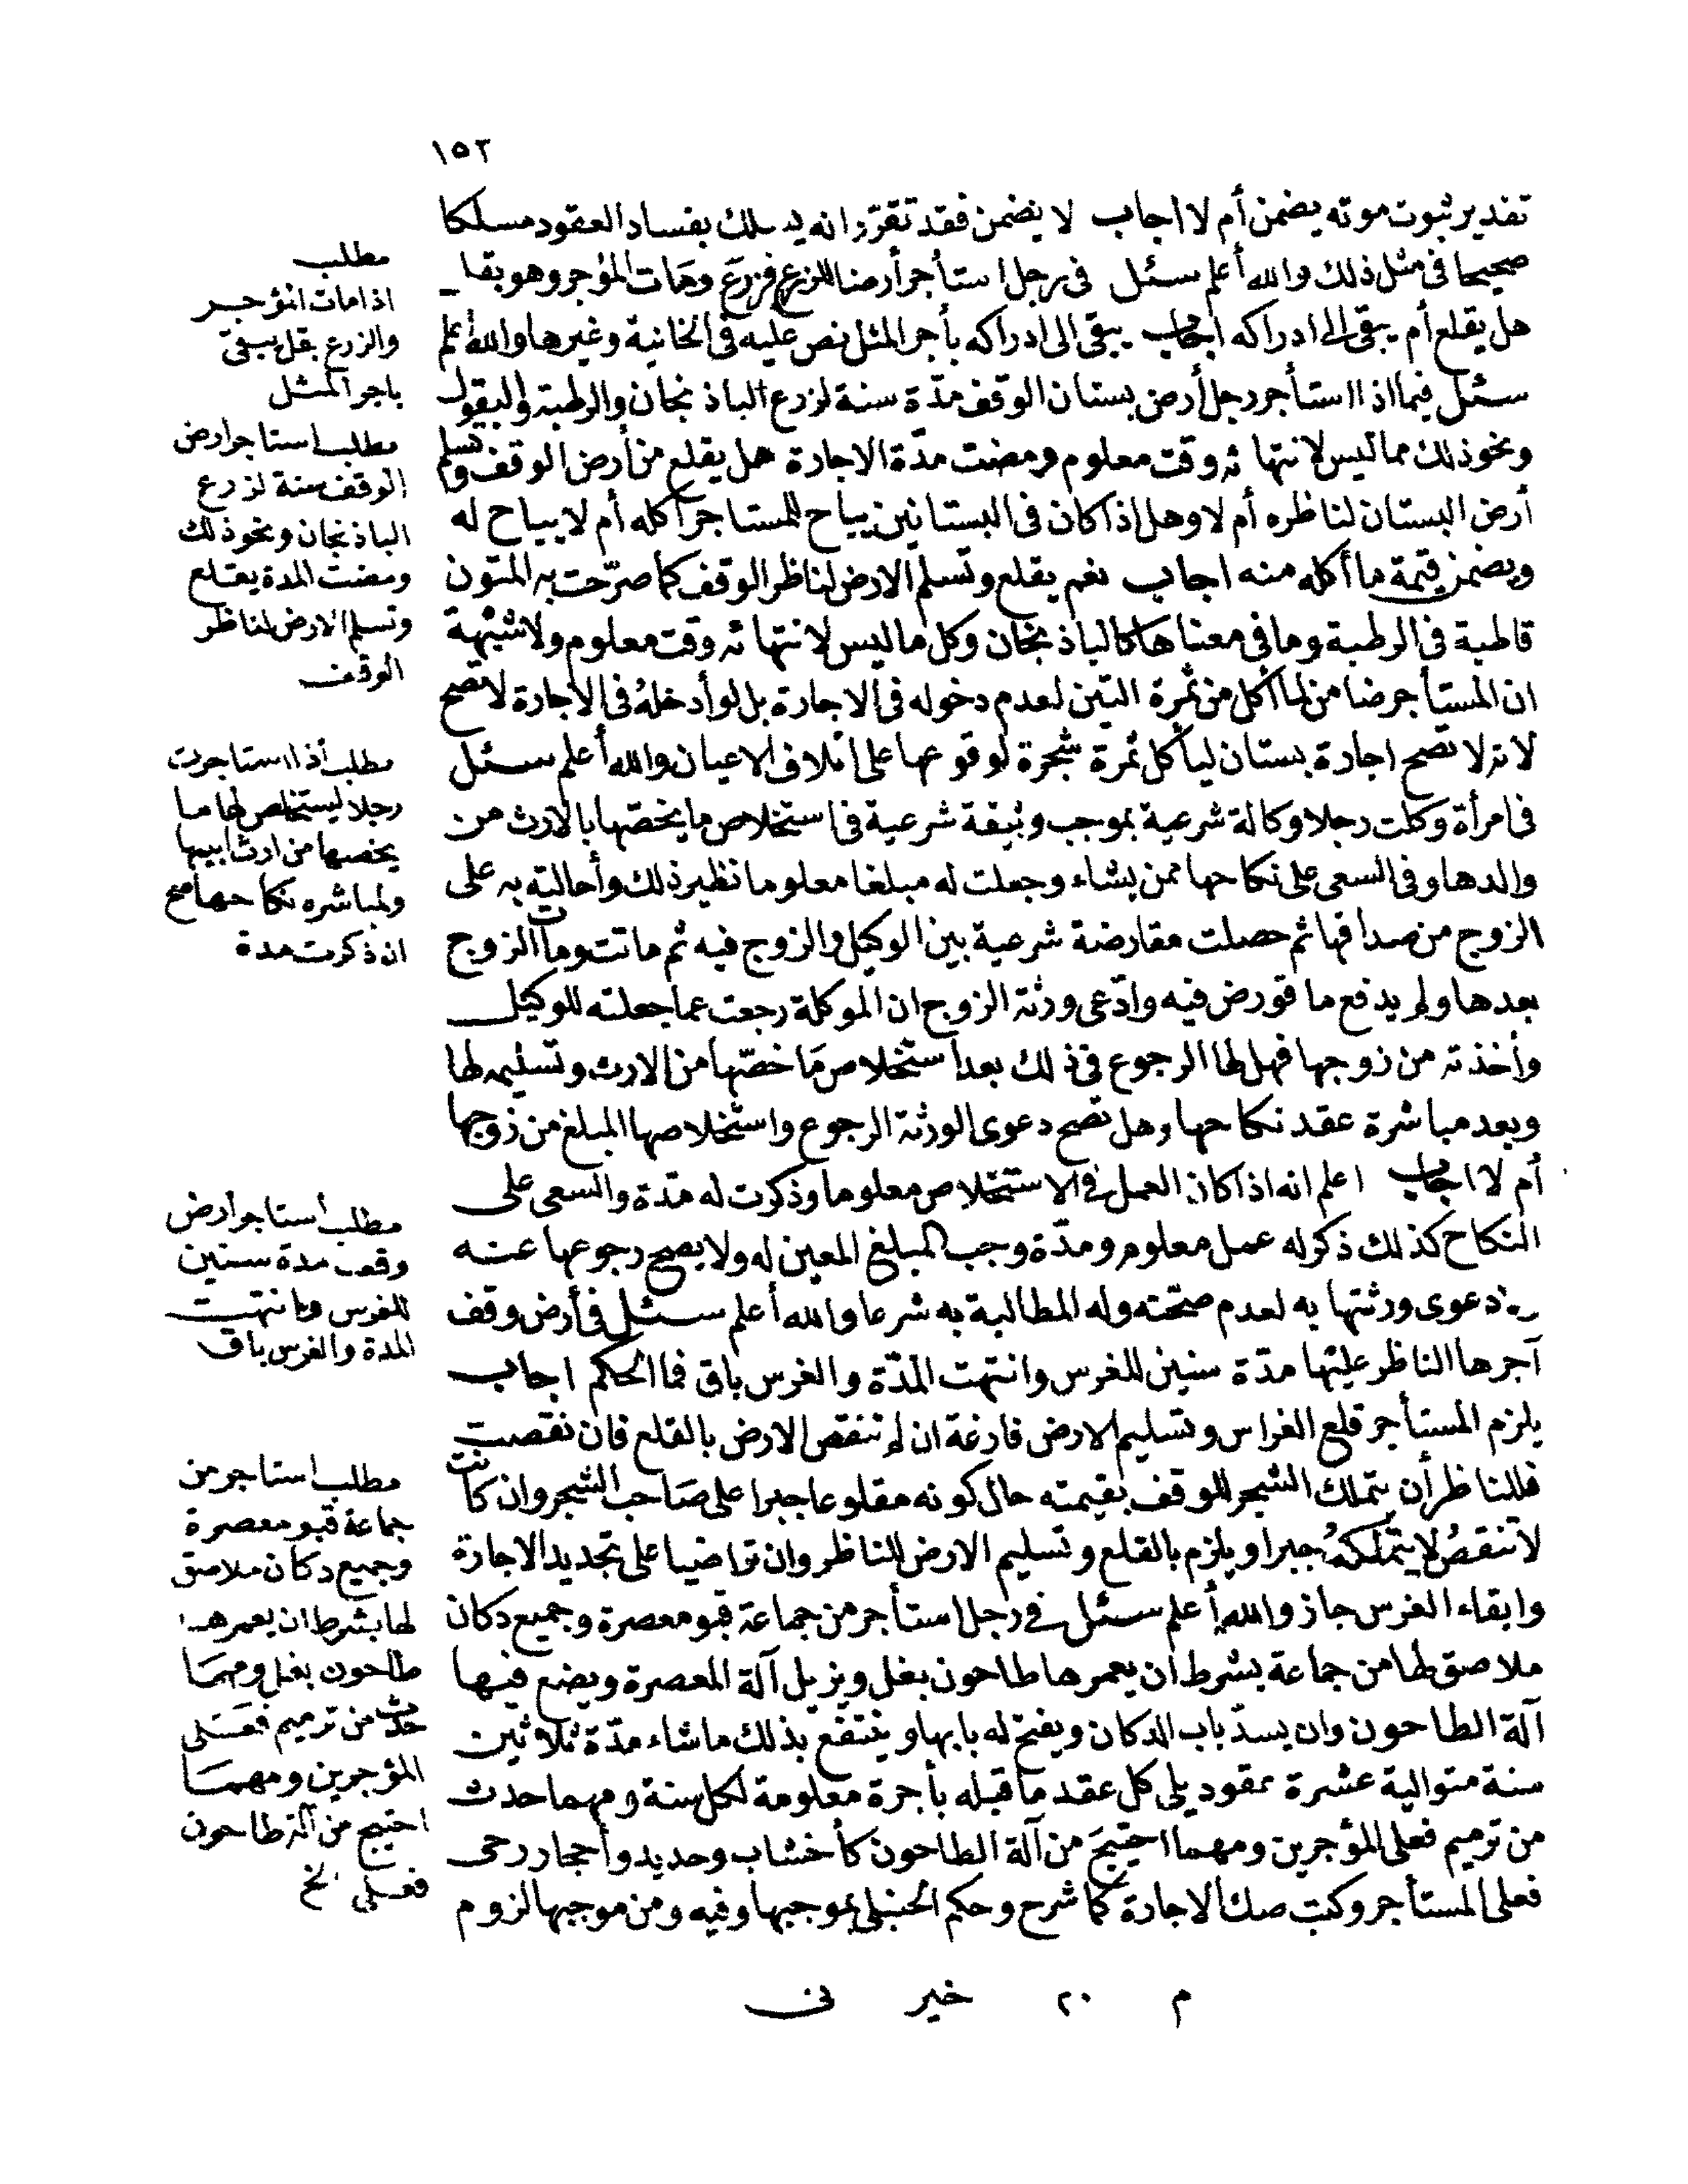 ١٥٣
تقدير ثبوت موته يضمن أم لا اجاب لا يضمن فقد تقرّر انه يسلك بفساد العقود مسلكا
صحيحا فى مثل ذلك والله أعلم سئل فى رجل استأجر أرضا للزرع فزرع ومات المؤجر وهو بقل
هل يقلع أم يبقى الى ادراكه اجاب يبقى الى ادراكه بأجر المثل نص عليه فى الخانية وغيرها والله أعلم
سئل فيما اذا استأجر رجل أرض بستان الوقف مدّة سنة لزرع الباذنجان والرطبة والبقول
ونحو ذلك مما ليس لانتهائه وقت معلوم ومضت مدّة الاجارة هل يقلع من أرض الوقف وتسلم
أرض البستان لناظره أم لا وهل اذا كان فى البستان تين يباح للمستاجر أكله أم لا يباح له
ويضمن قيمة ما أكله منه اجاب نعم يقلع وتسلم الارض لناظر الوقف كما صرّحت به المتون
قاطبة فى الرطبة وما فى معناها كالباذنجان وكل ما ليس لانتهائه وقت معلوم ولا شبهة
ان المستأجر ضامن لما أكل من ثمرة التين لعدم دخوله فى الاجارة بل لو أدخله فى الاجارة لا تصح
لانه لا تصح اجارة بستان ليأكل ثمرة شجرة لوقوعها على اتلاف الاعيان والله أعلم سئل
فى امرأة وكلت رجلا وكالة شرعية بموجب وثيقة شرعية فى استخلاص ما يخصّها بالارث من
والدها وفى السعى على نكاحها ممن يشاء وجعلت له مبلغا معلوما نظير ذلك وأحالته به على
الزوج من صداقها ثم حصلت مقارضة شرعية بين الوكيل والزوج فيه ثم ماتت ومات الزوج
بعدها ولم يدفع ما قورض فيه وادّعى ورثة الزوج ان الموكلة رجعت عما جعلته للوكيل
وأخذته من زوجها فهل لها الرجوع فى ذلك بعد استخلاص ما خصّها من الارث وتسليمه لها
وبعد مباشرة عقد نكاحها وهل تصح دعوى الورثة الرجوع واستخلاصها المبلغ من زوجها
أم لا اجاب اعلم انه اذا كان العمل فى الاستخلاص معلوما وذكرت له مدّة والسعى على
النكاح كذلك ذكر له عمل معلوم ومدّة وجب المبلغ المعين له ولا يصح رجوعها عنه
دعوى ورثتها به لعدم صحته وله المطالبة به شرعا والله أعلم سئل فى أرض وقف
آجرها الناظر عليها مدّة سنين للغرس وانتهت المدّة والغرس باق فما الحكم اجاب
يلزم المستأجر قلع الغراس وتسليم الارض فارغة ان لم تنقص الارض بالقلع فان نقصت
فللناظر أن يتملك الشجر للوقف بقيمته حال كونه مقلوعا جبرا على صاحب الشجر وان كانت
لا تنقص لا يتملكه جبرا ويلزم بالقلع وتسليم الارض للناظر وان تراضيا على تجديد الاجارة
وابقاء الغرس جاز والله أعلم سئل فى رجل استأجر من جماعة قبو معصرة وجميع دكان
ملاصق لها من جماعة بشرط ان يعمرها طاحون بغل ويزيل آلة المعصرة ويضع فيها
آلة الطاحون وان يسدّ باب الدكان ويفتح له بابها وينتفع بذلك ما شاء مدّة ثلاثين
سنة متوالية عشرة عقود يلى كل عقد ما قبله بأجرة معلومة لكل سنة ومهما حدث
من ترميم فعلى المؤجرين ومهما احتيج من آلة الطاحون كأخشاب وحديد وأحجار رحى
فعلى المستأجر وكتب صك الاجارة كما شرح وحكم الحنبلى بموجبها وفيه ومن موجبها لزوم
مطلب
اذا مات المؤجر
والزرع بقل يبقى
باجر المثل
مطلب استاجر ارض
الوقف سنة لزرع
الباذنجان ونحو ذلك
ومضت المدة يقلع
وتسلم الارض لناظر
الوقف
مطلب اذا استاجرت
رجلا ليستخلص لها ما
يخصها من ارث ابيها
ولمباشرة نكاحها صح
ان ذكرت مدة
مطلب استاجر أرض
وقف مدة سنين
للغرس وانتهت
المدة والغرس باق
مطلب استاجر من
جماعة قبو معصرة
وجميع دكان ملاصق
لها بشرط ان يعمرها
طاحون بغل ومهما
حدث من ترميم فعلى
المؤجرين ومهما
احتيج من آلة طاحون
فعلى الخ
م ٢٠ خير نى